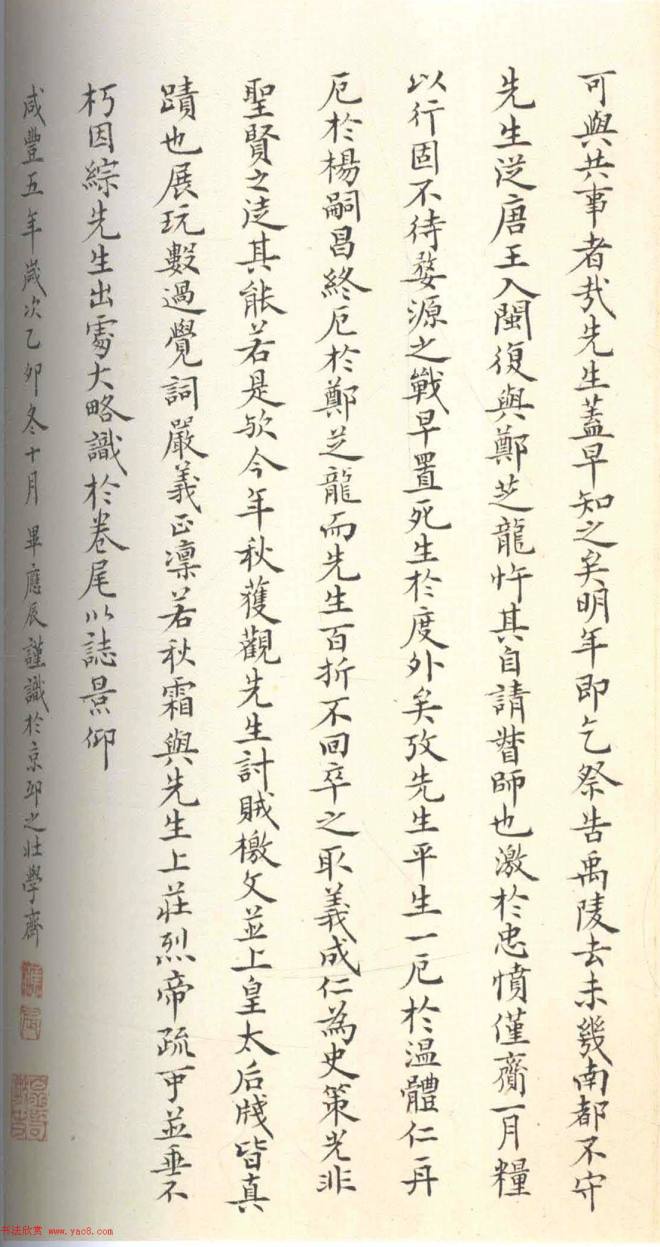 可與共事者哉先生蓋早知之矣明年即乞祭告禹陵去未幾南都不守
先生從唐王入閩復與鄭芝龍忤其自請督師也激於忠憤僅齎一月糧
以行固不待婺源之戰早置死生於度外矣攷先生平生一厄於溫體仁再
厄於楊嗣昌終厄於鄭芝龍而先生百折不回卒之取義成仁為史策光非
聖賢之徒其能若是歟今年秋獲觀先生討賊檄文並上皇太后牋皆真
蹟也展玩數過覺詞嚴義正凜若秋霜與先生上莊烈帝疏可並垂不
朽因綜先生出處大略識於卷尾以誌景仰
咸豐五年歲次乙卯冬十月畢應辰謹識於京邸之壯學齋
书法欣赏 www.yac8.com